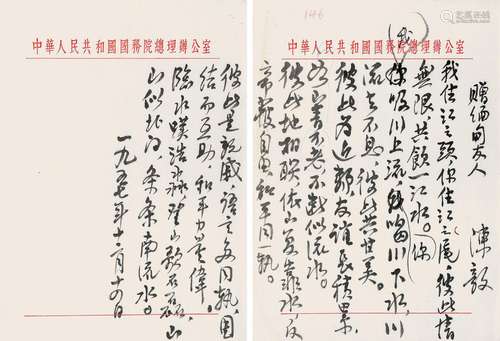 中華人民共和國國務院總理辦公室
贈缅甸友人
陳毅
我住江之頭，你住江之尾，彼此情
無限，共飲一江水。你
我
你吸川上流，我喝川下水，川
流去不息，彼此共甘美。
彼此为近鄰，友誼長積累。
山青不老，不断似流水。
彼此地相联，依山复靠水，反
帝自由，和平同一軌。
中華人民共和國國務院總理辦公室
彼此是親戚，語言多同軌，團
結而互助，和平力量偉。
臨水嘆浩淼，登山歌石磊，山
山似北向，条条南流水。
一九五七年十二月十四日